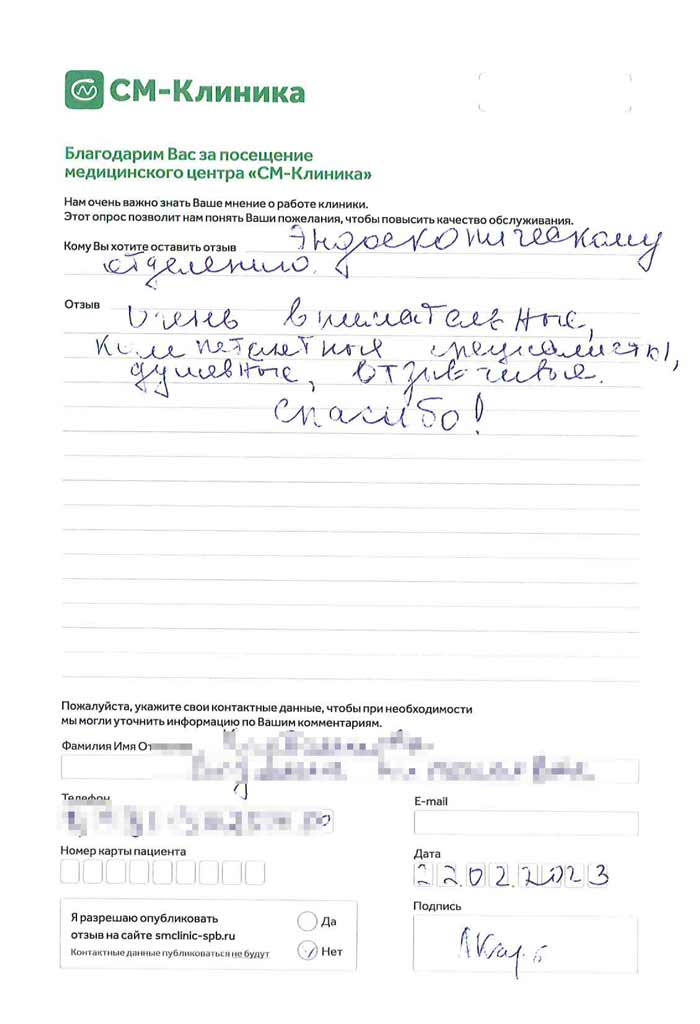 СМ-Клиника
Благодарим Вас за посещение
медицинского центра «СМ-Клиника»
Нам очень важно знать Ваше мнение о работе клиники.
Этот опрос позволит нам понять Ваши пожелания, чтобы повысить качество обслуживания.
Кому Вы хотите оставить отзыв Эндоскопическому
отделению.
Отзыв Очень внимательные,
компетентные специалисты,
душевные, отзывчивые.
Спасибо!
Пожалуйста, укажите свои контактные данные, чтобы при необходимости
мы могли уточнить информацию по Вашим комментариям.
Фамилия Имя
Телефон
E-mail
Номер карты пациента
Дата
22.02.2023
Я разрешаю опубликовать
отзыв на сайте smclinic-spb.ru
Контактные данные публиковаться не будут
Да
Нет
Подпись